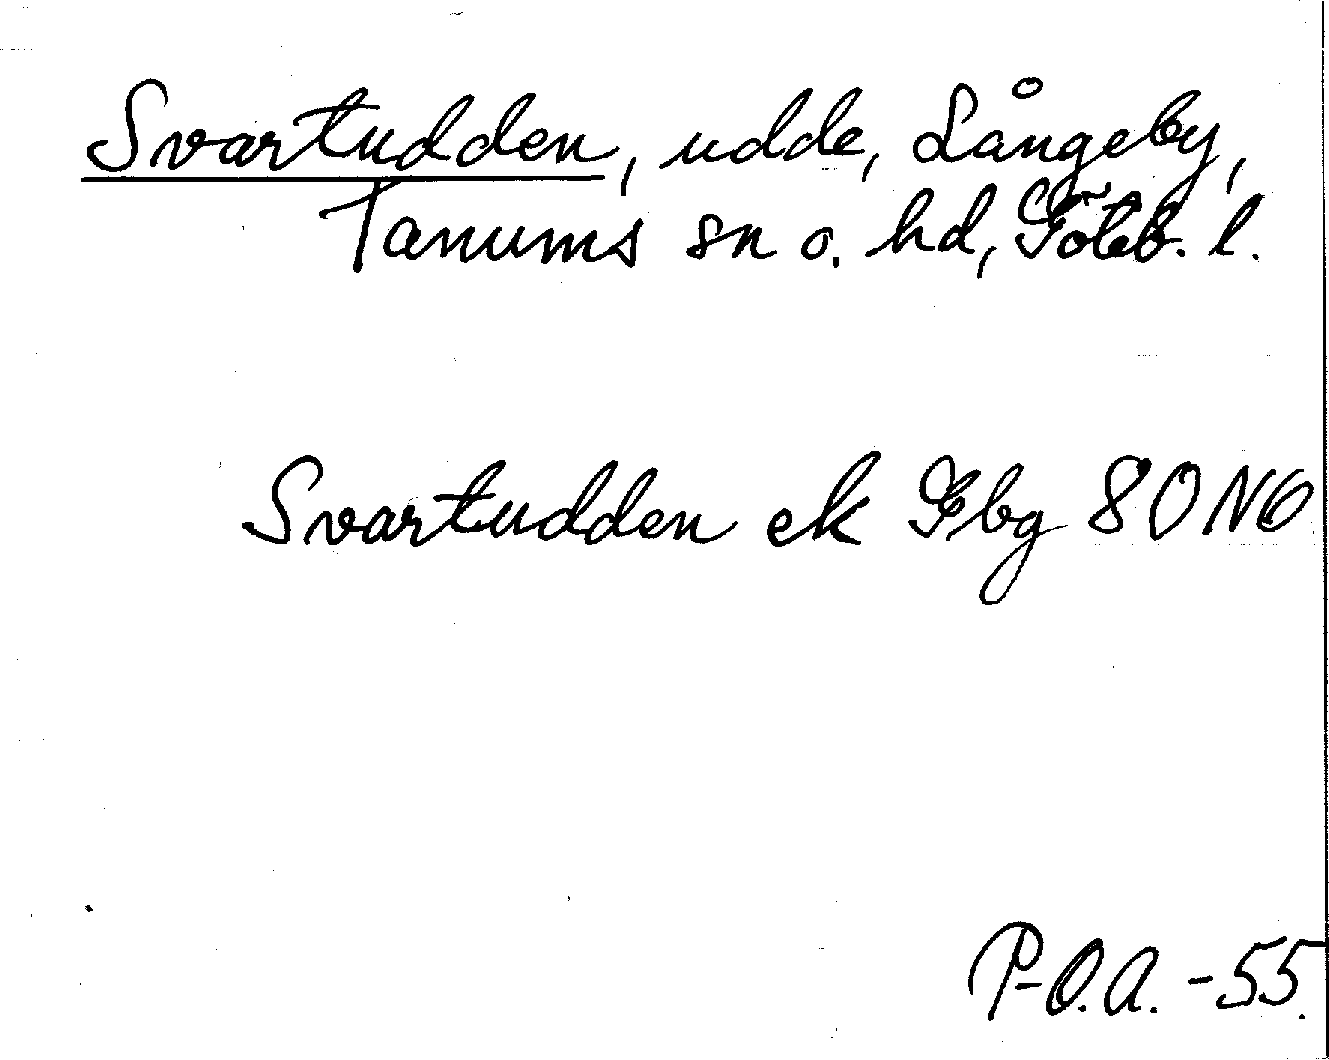 Svartudden, udde, Långeby,
Tanums sn o. hd, Göteb. l.
Svartudden ek Gbg 80 NO
P-O.A. -55.